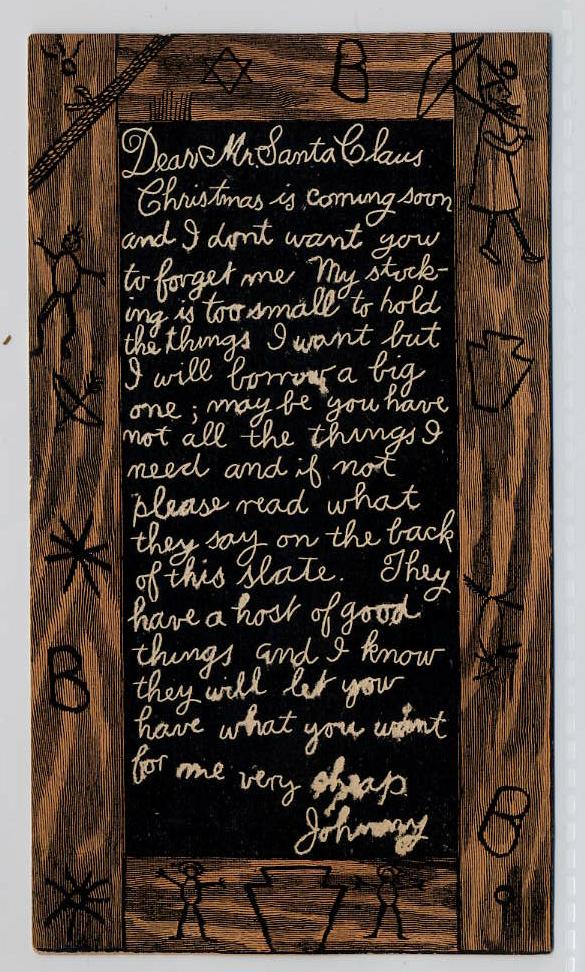 B
Dear Mr. Santa Claus
Christmas is coming soon
and I dont want you
to forget me My stock-
ing is too small to hold
the things I want but
I will borrow a big
one ; may be you have
not all the things I
need and if not
please read what
they say on the back
of this slate. They
have a host of good
things and I know
they will let you
have what you want
for me very cheap
Johnny
B
B